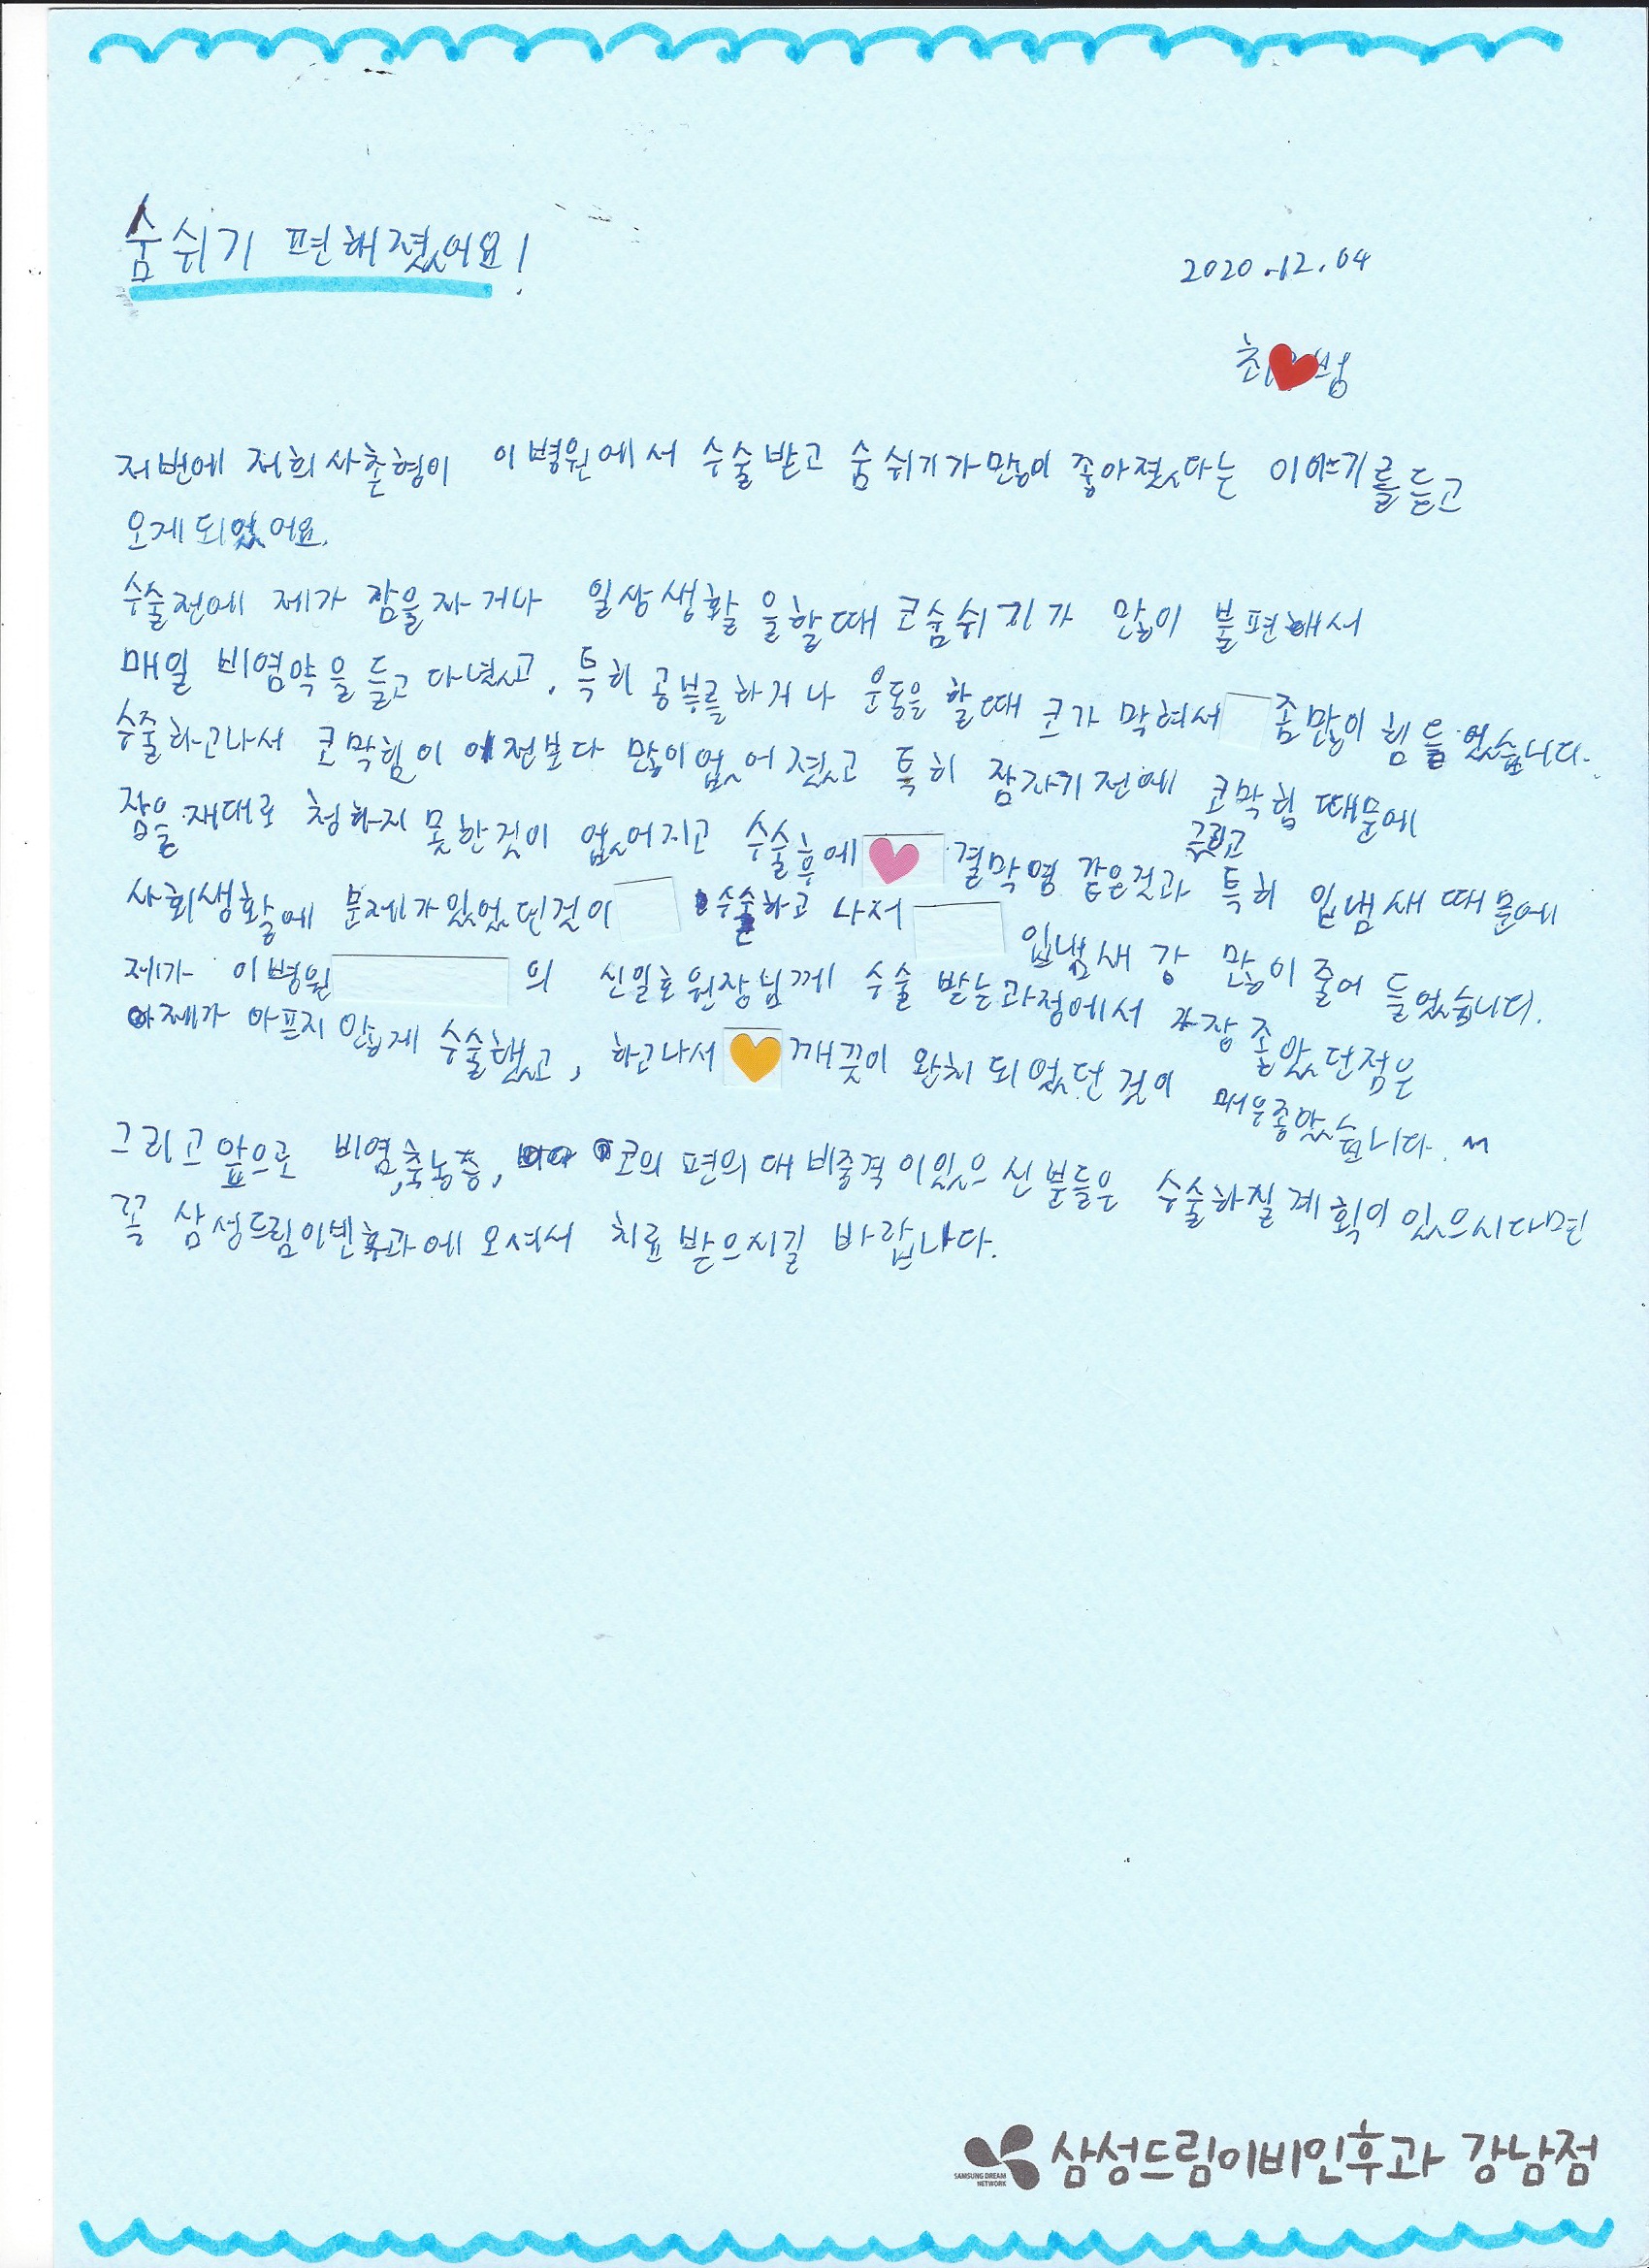 숨쉬기 편해졌어요!
2020.12.04
최
저번에 저희사촌형이 이병원에서 수술받고 숨쉬기가많이 좋아졌다는 이야기를듣고
오게되었어요.
수술전에 제가 잠을자거나 일상생활을할때 코숨쉬기가 많이 불편해서
매일 비염약을 들고다녔고, 특히 공부를하거나 운동을 할때 코가 막혀서 좀많이 힘들었습니다.
수술하고나서 코막힘이 예전보다 많이없어졌고 특히 잠자기전에 코막힘 때문에
잠을 재대로 청하지 못한것이 없어지고 수술후에 결막염 같은것과 그리고 특히 입냄새때문에
사회생활에 문제가있었던것이 수술하고 나서 입냄새 강 많이줄어 들었습니다.
제가 이병원 의 신일호원장님께 수술 받는과정에서 가장 좋았던점은
제가 아프지 않게 수술했고, 하고나서 깨끗이 완치 되었던 것이 매우좋았습니다.
그리고 앞으로 비염,축농증, 코의 편의대 비중격이있으신분들은 수술하실계획이있으시다면
꼭 삼성드림이빈후과에 오셔서 치료받으시길 바랍니다.
SAMSUNG DREAM
NETWORK
삼성드림이비인후과 강남점